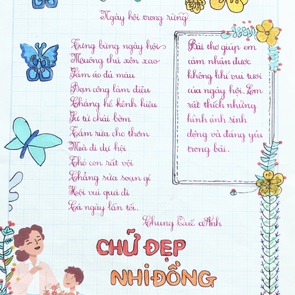 Ngày hội trong rừng
Tưng bừng ngày hội
Muông thú xôn xao
Gấm áo đủ màu
Bạn công làm điệu
Chẳng hề kênh kiệu
Tu tú chải bờm
Tắm sửa cho thơm
Mới đi dự hội
Thỏ con rất vội
Chẳng sửa soạn gì
Hội vui quá đi
Cả ngày lẫn tối.
Chung Quốc Anh
Bài thơ giúp em
cảm nhận được
không khí vui tươi
của ngày hội. Em
rất thích những
hình ảnh sinh
động và đáng yêu
trong bài.
CHỮ ĐẸP
NHI ĐỒNG